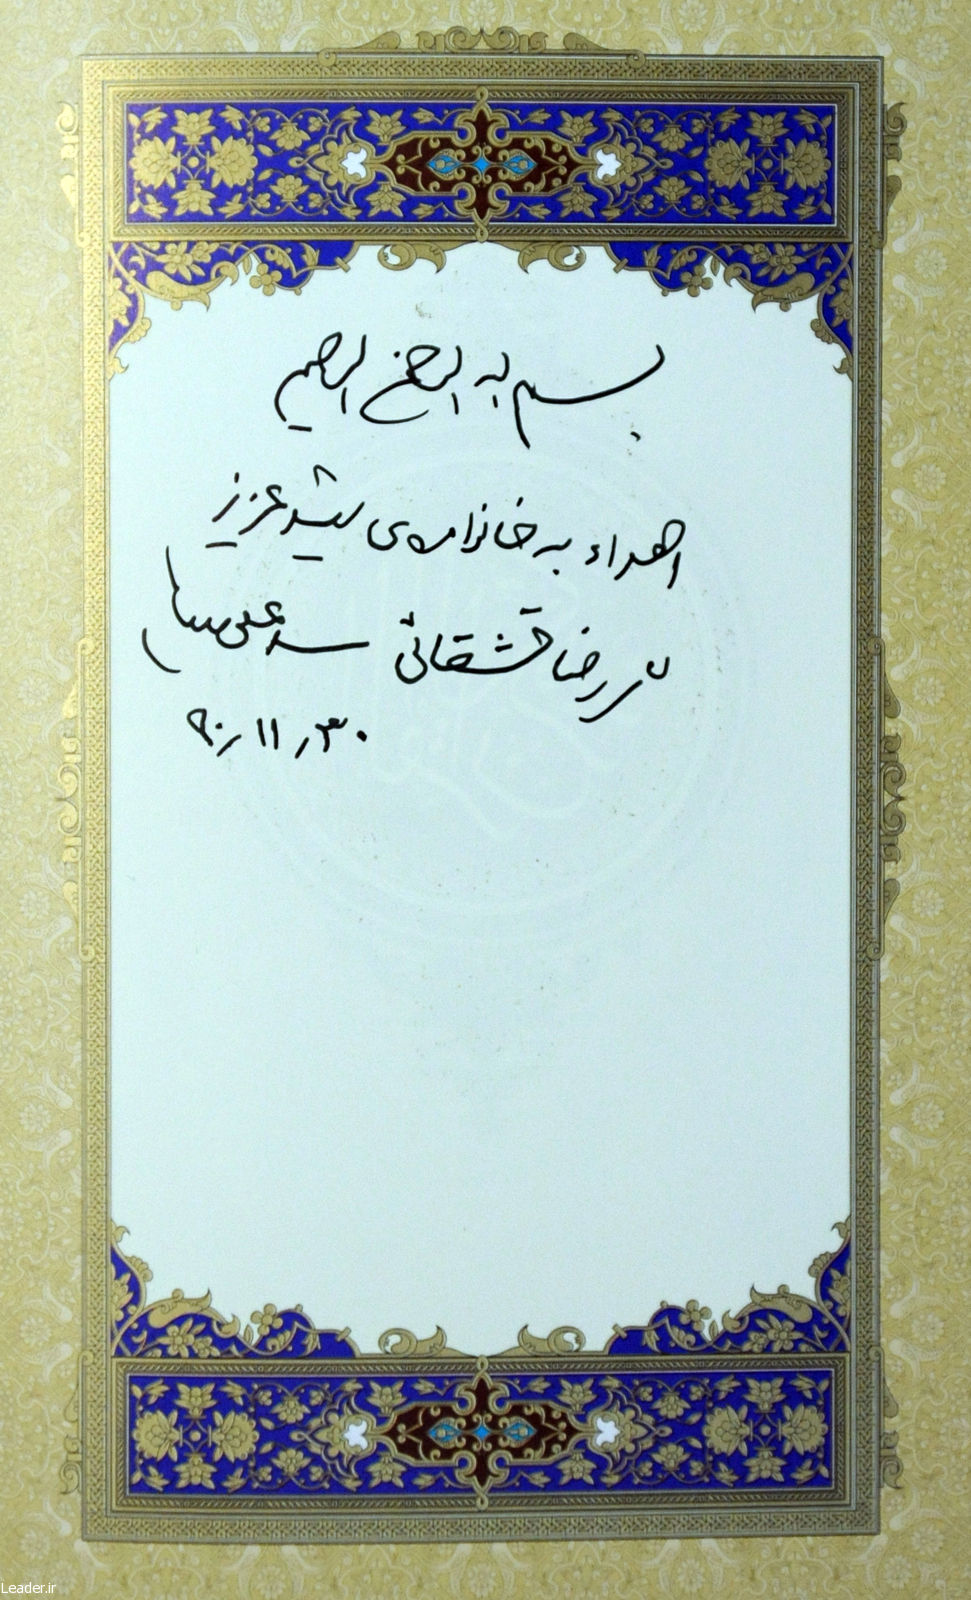 بسم الله الرحمن الرحیم
اهداء به خانواده‌ی شهید عزیز
رضا قشقائی سید علی خامنه‌ای
۹۰٫۱۱٫۳۰
Leader.ir